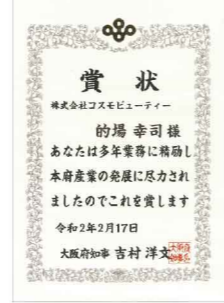 賞状
株式会社コスモビューティー
的場 幸司 様
あなたは多年業務に精励し
本府産業の発展に尽力され
ましたのでこれを賞します
令和2年2月17日
大阪府知事 吉村洋文